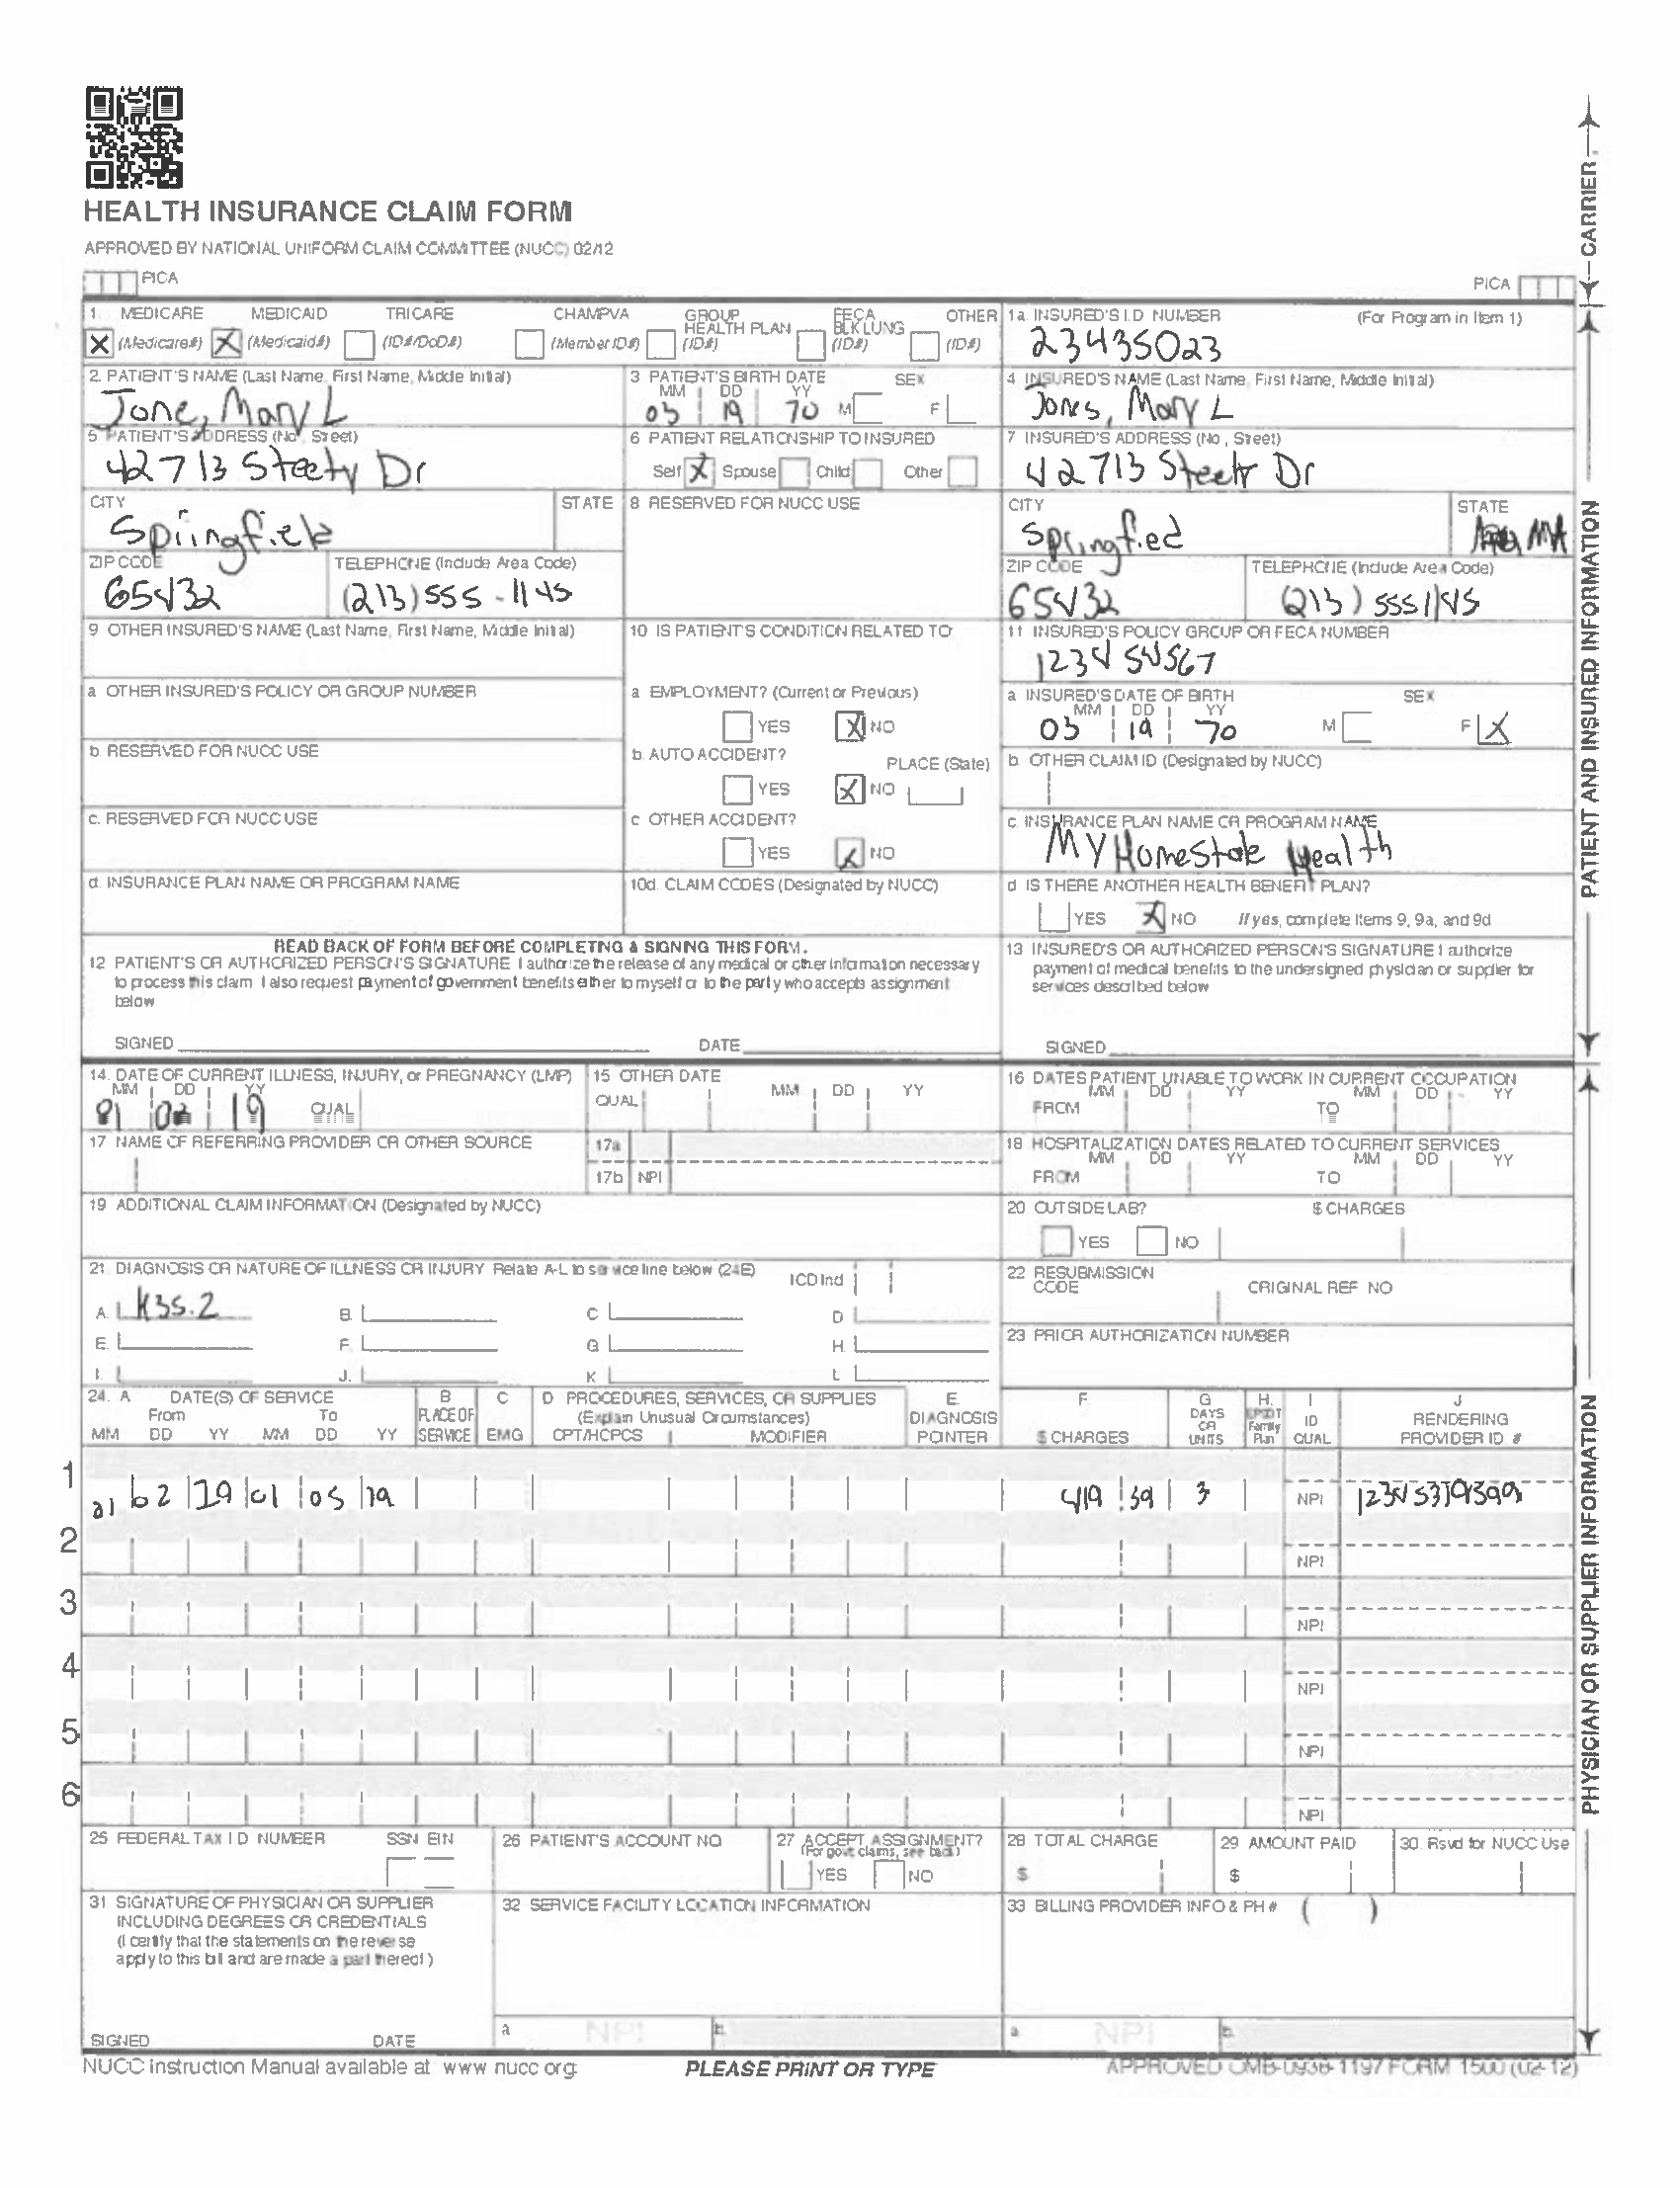 HEALTH INSURANCE CLAIM FORM
APPROVED BY NATIONAL UNIFORM CLAIM COMMITTEE (NUCC) 02/12
PICA
PICA
CARRIER
1. MEDICARE MEDICAID TRICARE CHAMPVA GROUP HEALTH PLAN FECA BLK LUNG OTHER
X (Medicare#) X (Medicaid#) (ID#/DoD#) (Member ID#) (ID#) (ID#) (ID#)
1a. INSURED'S I.D. NUMBER (For Program in Item 1)
23435023
2. PATIENT'S NAME (Last Name, First Name, Middle Initial)
Jone, Mary L
3 PATIENT'S BIRTH DATE SEX
MM DD YY
03 19 70 M F
4 INSURED'S NAME (Last Name, First Name, Middle Initial)
Jones, Mary L
5 PATIENT'S ADDRESS (No., Street)
42713 Steety Dr
6 PATIENT RELATIONSHIP TO INSURED
Self X Spouse Child Other
7 INSURED'S ADDRESS (No., Street)
42713 Dr
CITY STATE
Springfield
8 RESERVED FOR NUCC USE
CITY STATE
Springfied MA
ZIP CODE TELEPHONE (Include Area Code)
65432 (213) 555-1145
ZIP CODE TELEPHONE (Include Area Code)
65432 (213) 5551145
9 OTHER INSURED'S NAME (Last Name, First Name, Middle Initial)
10 IS PATIENT'S CONDITION RELATED TO
11 INSURED'S POLICY GROUP OR FECA NUMBER
123454567
a OTHER INSURED'S POLICY OR GROUP NUMBER
a EMPLOYMENT? (Current or Previous)
YES X NO
a INSURED'S DATE OF BIRTH SEX
MM DD YY
03 19 70 M F X
b. RESERVED FOR NUCC USE
b. AUTO ACCIDENT? PLACE (State)
YES X NO
b OTHER CLAIM ID (Designated by NUCC)
c. RESERVED FOR NUCC USE
c OTHER ACCIDENT?
YES X NO
c. INSURANCE PLAN NAME OR PROGRAM NAME
MY HomeState Health
d. INSURANCE PLAN NAME OR PROGRAM NAME
10d. CLAIM CODES (Designated by NUCC)
d IS THERE ANOTHER HEALTH BENEFIT PLAN?
YES X NO If yes, complete Items 9, 9a, and 9d
READ BACK OF FORM BEFORE COMPLETING & SIGNING THIS FORM.
12 PATIENT'S OR AUTHORIZED PERSON'S SIGNATURE I authorize the release of any medical or other information necessary
to process this claim I also request payment of government benefits either to myself or to the party who accepts assignment
below
SIGNED DATE
13 INSURED'S OR AUTHORIZED PERSON'S SIGNATURE I authorize
payment of medical benefits to the undersigned physician or supplier for
services described below
SIGNED
PATIENT AND INSURED INFORMATION
14. DATE OF CURRENT ILLNESS, INJURY, or PREGNANCY (LMP)
MM DD YY
01 02 19 QUAL
15 OTHER DATE
QUAL MM DD YY
16 DATES PATIENT UNABLE TO WORK IN CURRENT OCCUPATION
MM DD YY MM DD YY
FROM TO
17 NAME OF REFERRING PROVIDER OR OTHER SOURCE
17a
17b NPI
18 HOSPITALIZATION DATES RELATED TO CURRENT SERVICES
MM DD YY MM DD YY
FROM TO
19 ADDITIONAL CLAIM INFORMATION (Designated by NUCC)
20 OUTSIDE LAB? $ CHARGES
YES NO
21. DIAGNOSIS OR NATURE OF ILLNESS OR INJURY Relate A-L to service line below (24E) ICD Ind
A. K35.2 B. C. D.
E. F. G. H.
I. J. K. L.
22 RESUBMISSION CODE ORIGINAL REF NO
23 PRIOR AUTHORIZATION NUMBER
24. A DATE(S) OF SERVICE B C D PROCEDURES, SERVICES, OR SUPPLIES E. F. G H. I J
From To PLACE OF (Explain Unusual Circumstances) DIAGNOSIS DAYS OR EPSDT Family ID RENDERING
MM DD YY MM DD YY SERVICE EMG CPT/HCPCS MODIFIER POINTER $ CHARGES UNITS Plan QUAL PROVIDER ID #
1 01 02 19 01 05 19 419 39 3 NPI
2 NPI
3 NPI
4 NPI
5 NPI
6 NPI
25 FEDERAL TAX I D NUMBER SSN EIN
26 PATIENT'S ACCOUNT NO
27 ACCEPT ASSIGNMENT?
(For govt claims, see back)
YES NO
28 TOTAL CHARGE
$
29 AMOUNT PAID
$
30. Rsvd for NUCC Use
31 SIGNATURE OF PHYSICIAN OR SUPPLIER
INCLUDING DEGREES OR CREDENTIALS
(I certify that the statements on the reverse
apply to this bill and are made a part thereof)
SIGNED DATE
32 SERVICE FACILITY LOCATION INFORMATION
a NPI b.
33 BILLING PROVIDER INFO & PH # ( )
a NPI b.
PHYSICIAN OR SUPPLIER INFORMATION
NUCC Instruction Manual available at www nucc org
PLEASE PRINT OR TYPE
APPROVED OMB-0938-1197 FORM 1500 (02-12)